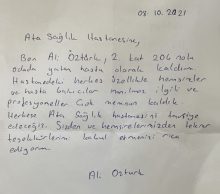 08.10.2021
Ata Sağlık Hastanesine,
Ben Ali Öztürk, 2. kat 206 nolu
odada yatan hasta olarak kaldım.
Hastanedeki herkes özellikle hemşireler
ve hasta bakıcılar inanılmaz ilgili ve
profesyoneller Çok memnun kaldık
Herkese Ata Sağlık hastanesini tavsiye
edeceğiz. Sizden ve hemşirelerinizden tekrar
teşekkürlerimi kabul etmenizi rica
ediyorum.
Ali Öztürk